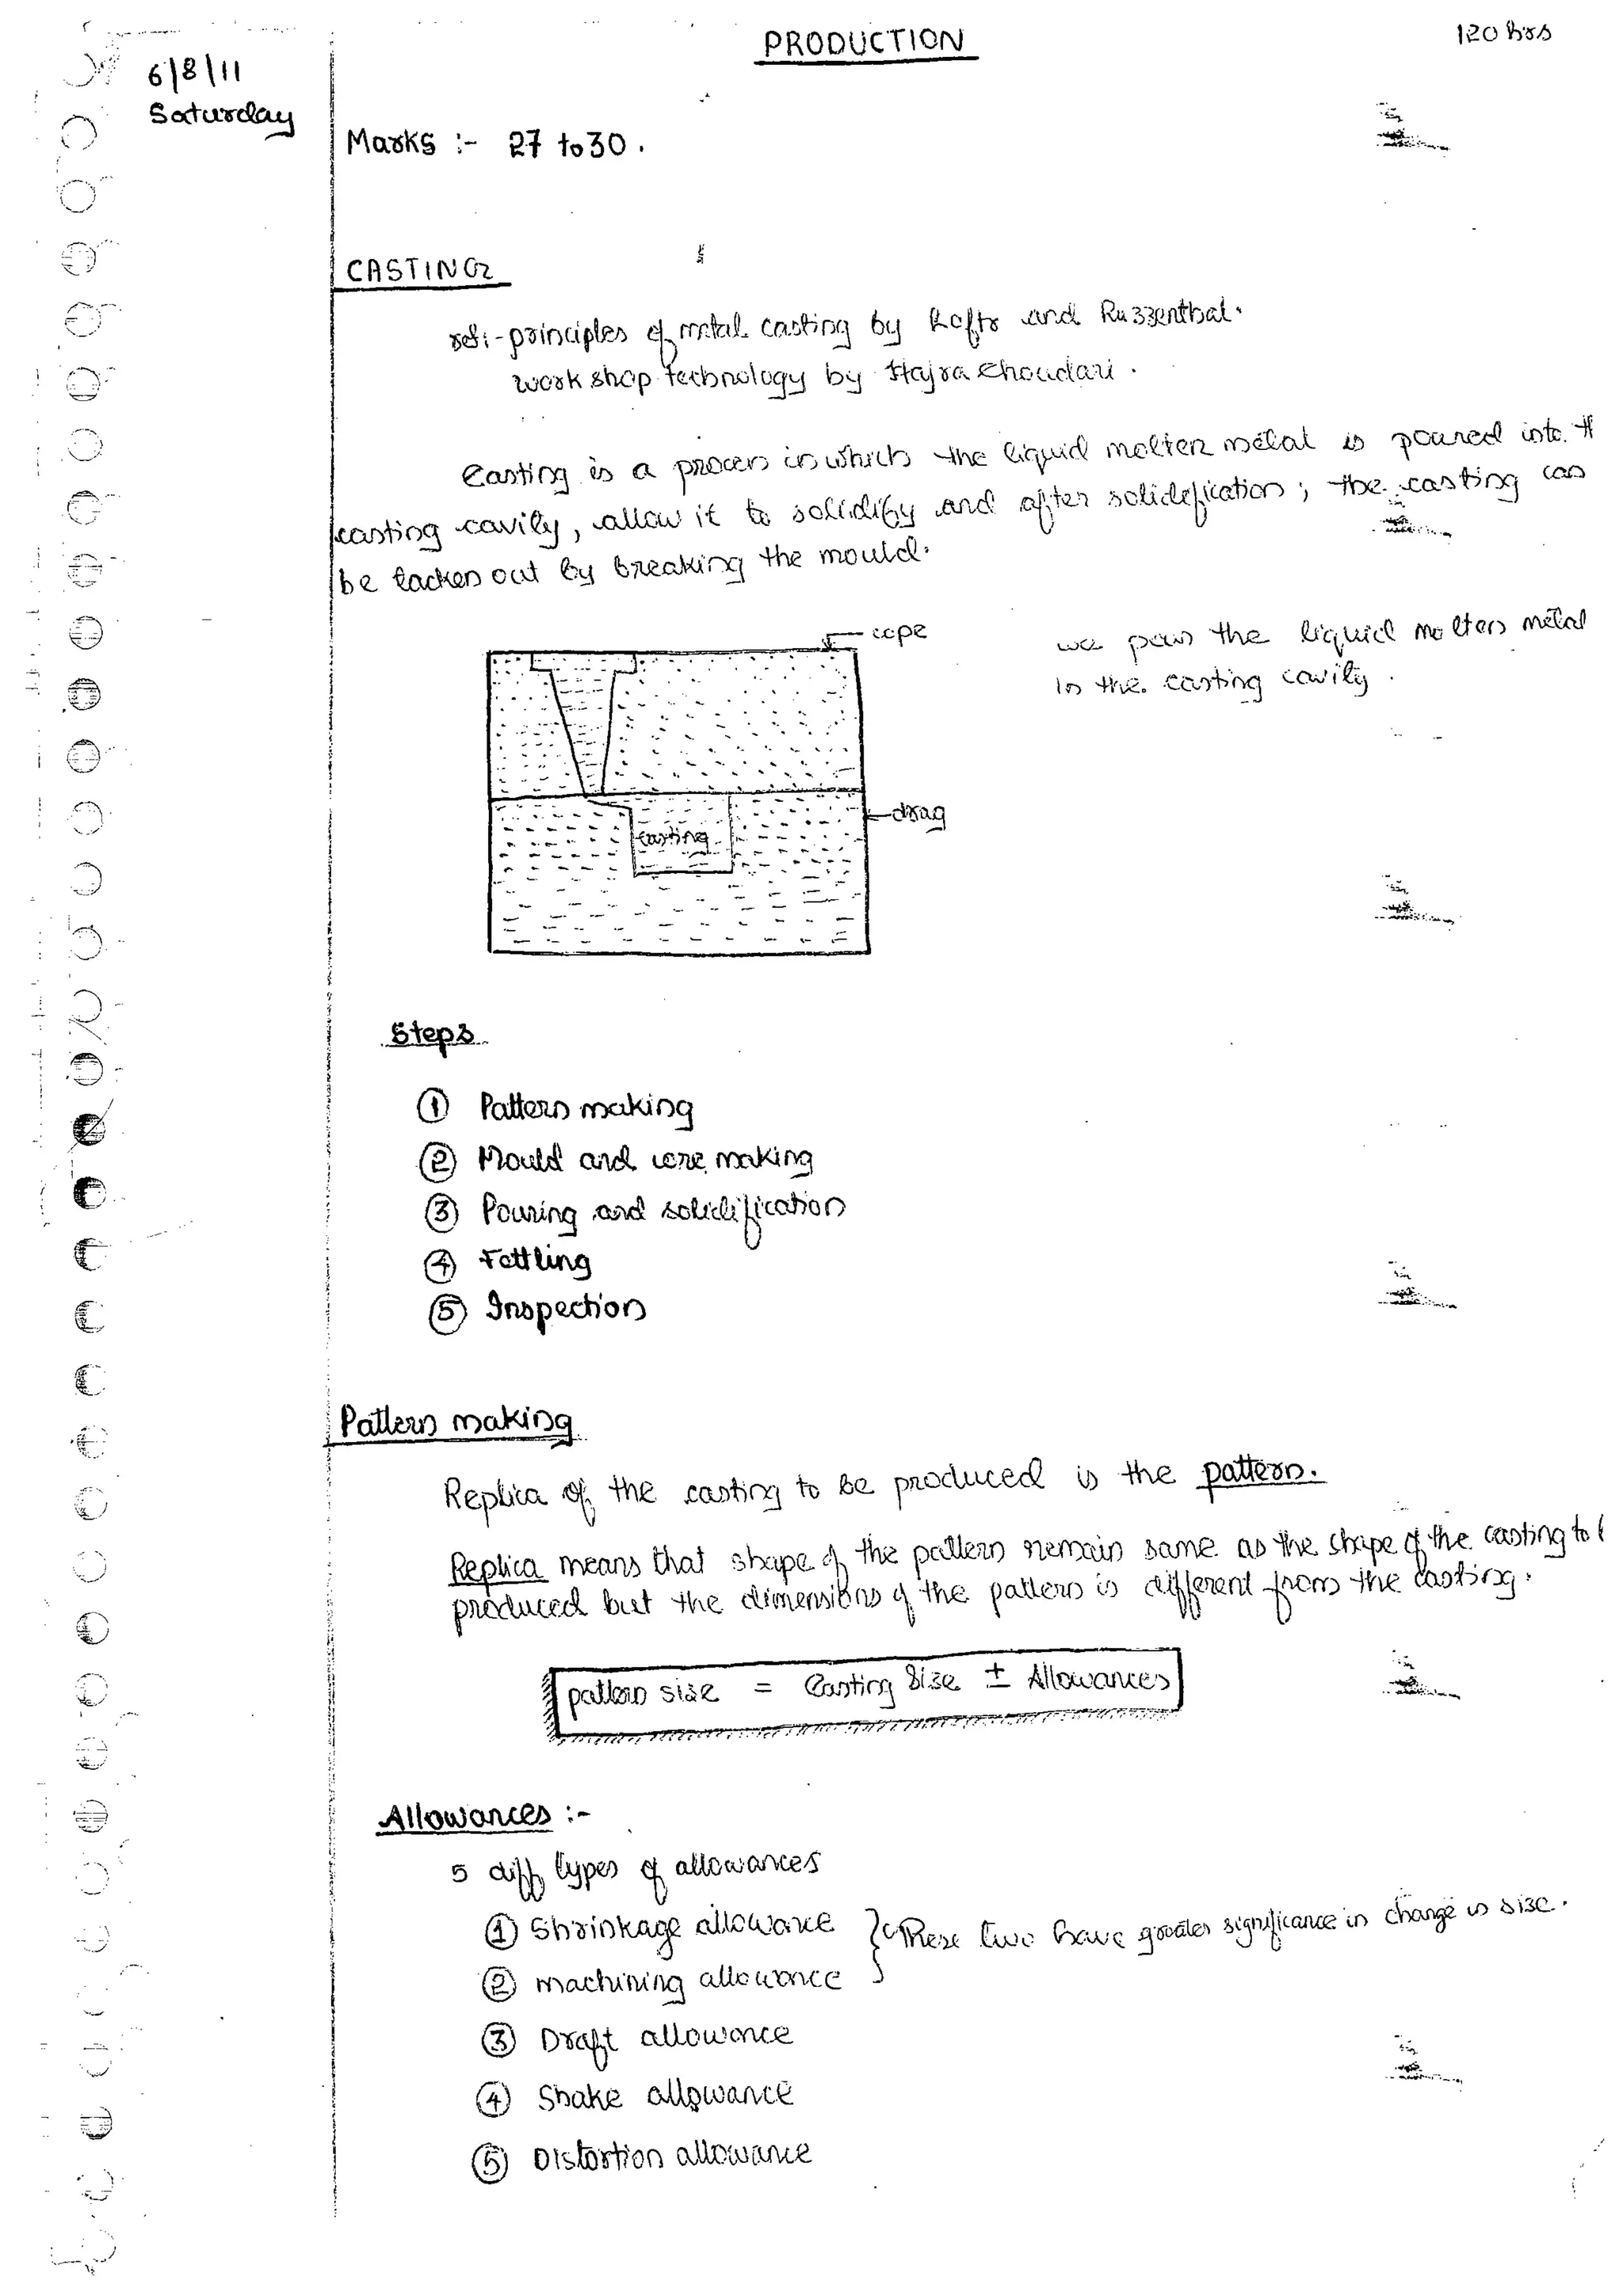 PRODUCTION
120 hrs
6/8/11
Saturday
Marks :- 27 to 30.
CASTING
ref:- principles of metal casting by and
work shop technology by Hajra Choudari.
Casting is a process in which the liquid molten metal is poured into
casting cavity, allow it to solidify and after solidification; the casting can
be tacken out by breaking the mould.
cope
we pour the liquid molten metal
in the casting cavity.
drag
casting
Steps
① Pattern making
② Mould and core making
③ Pouring and solidification
④ Fettling
⑤ Inspection
Pattern making
Replica of the casting to be produced is the pattern.
Replica means that shape of the pattern remain same as the shape of the casting to
produced but the dimensions of the pattern is different from the casting.
pattern size = Casting Size ± Allowances
Allowances :-
5 diff types of allowances
① Shrinkage allowance } These two have greater significance in change in size.
② machining allowance
③ Draft allowance
④ Shake allowance
⑤ Distortion allowance